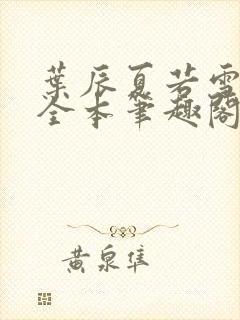 葉辰夏若雪
全本筆趣閣
黃泉隼